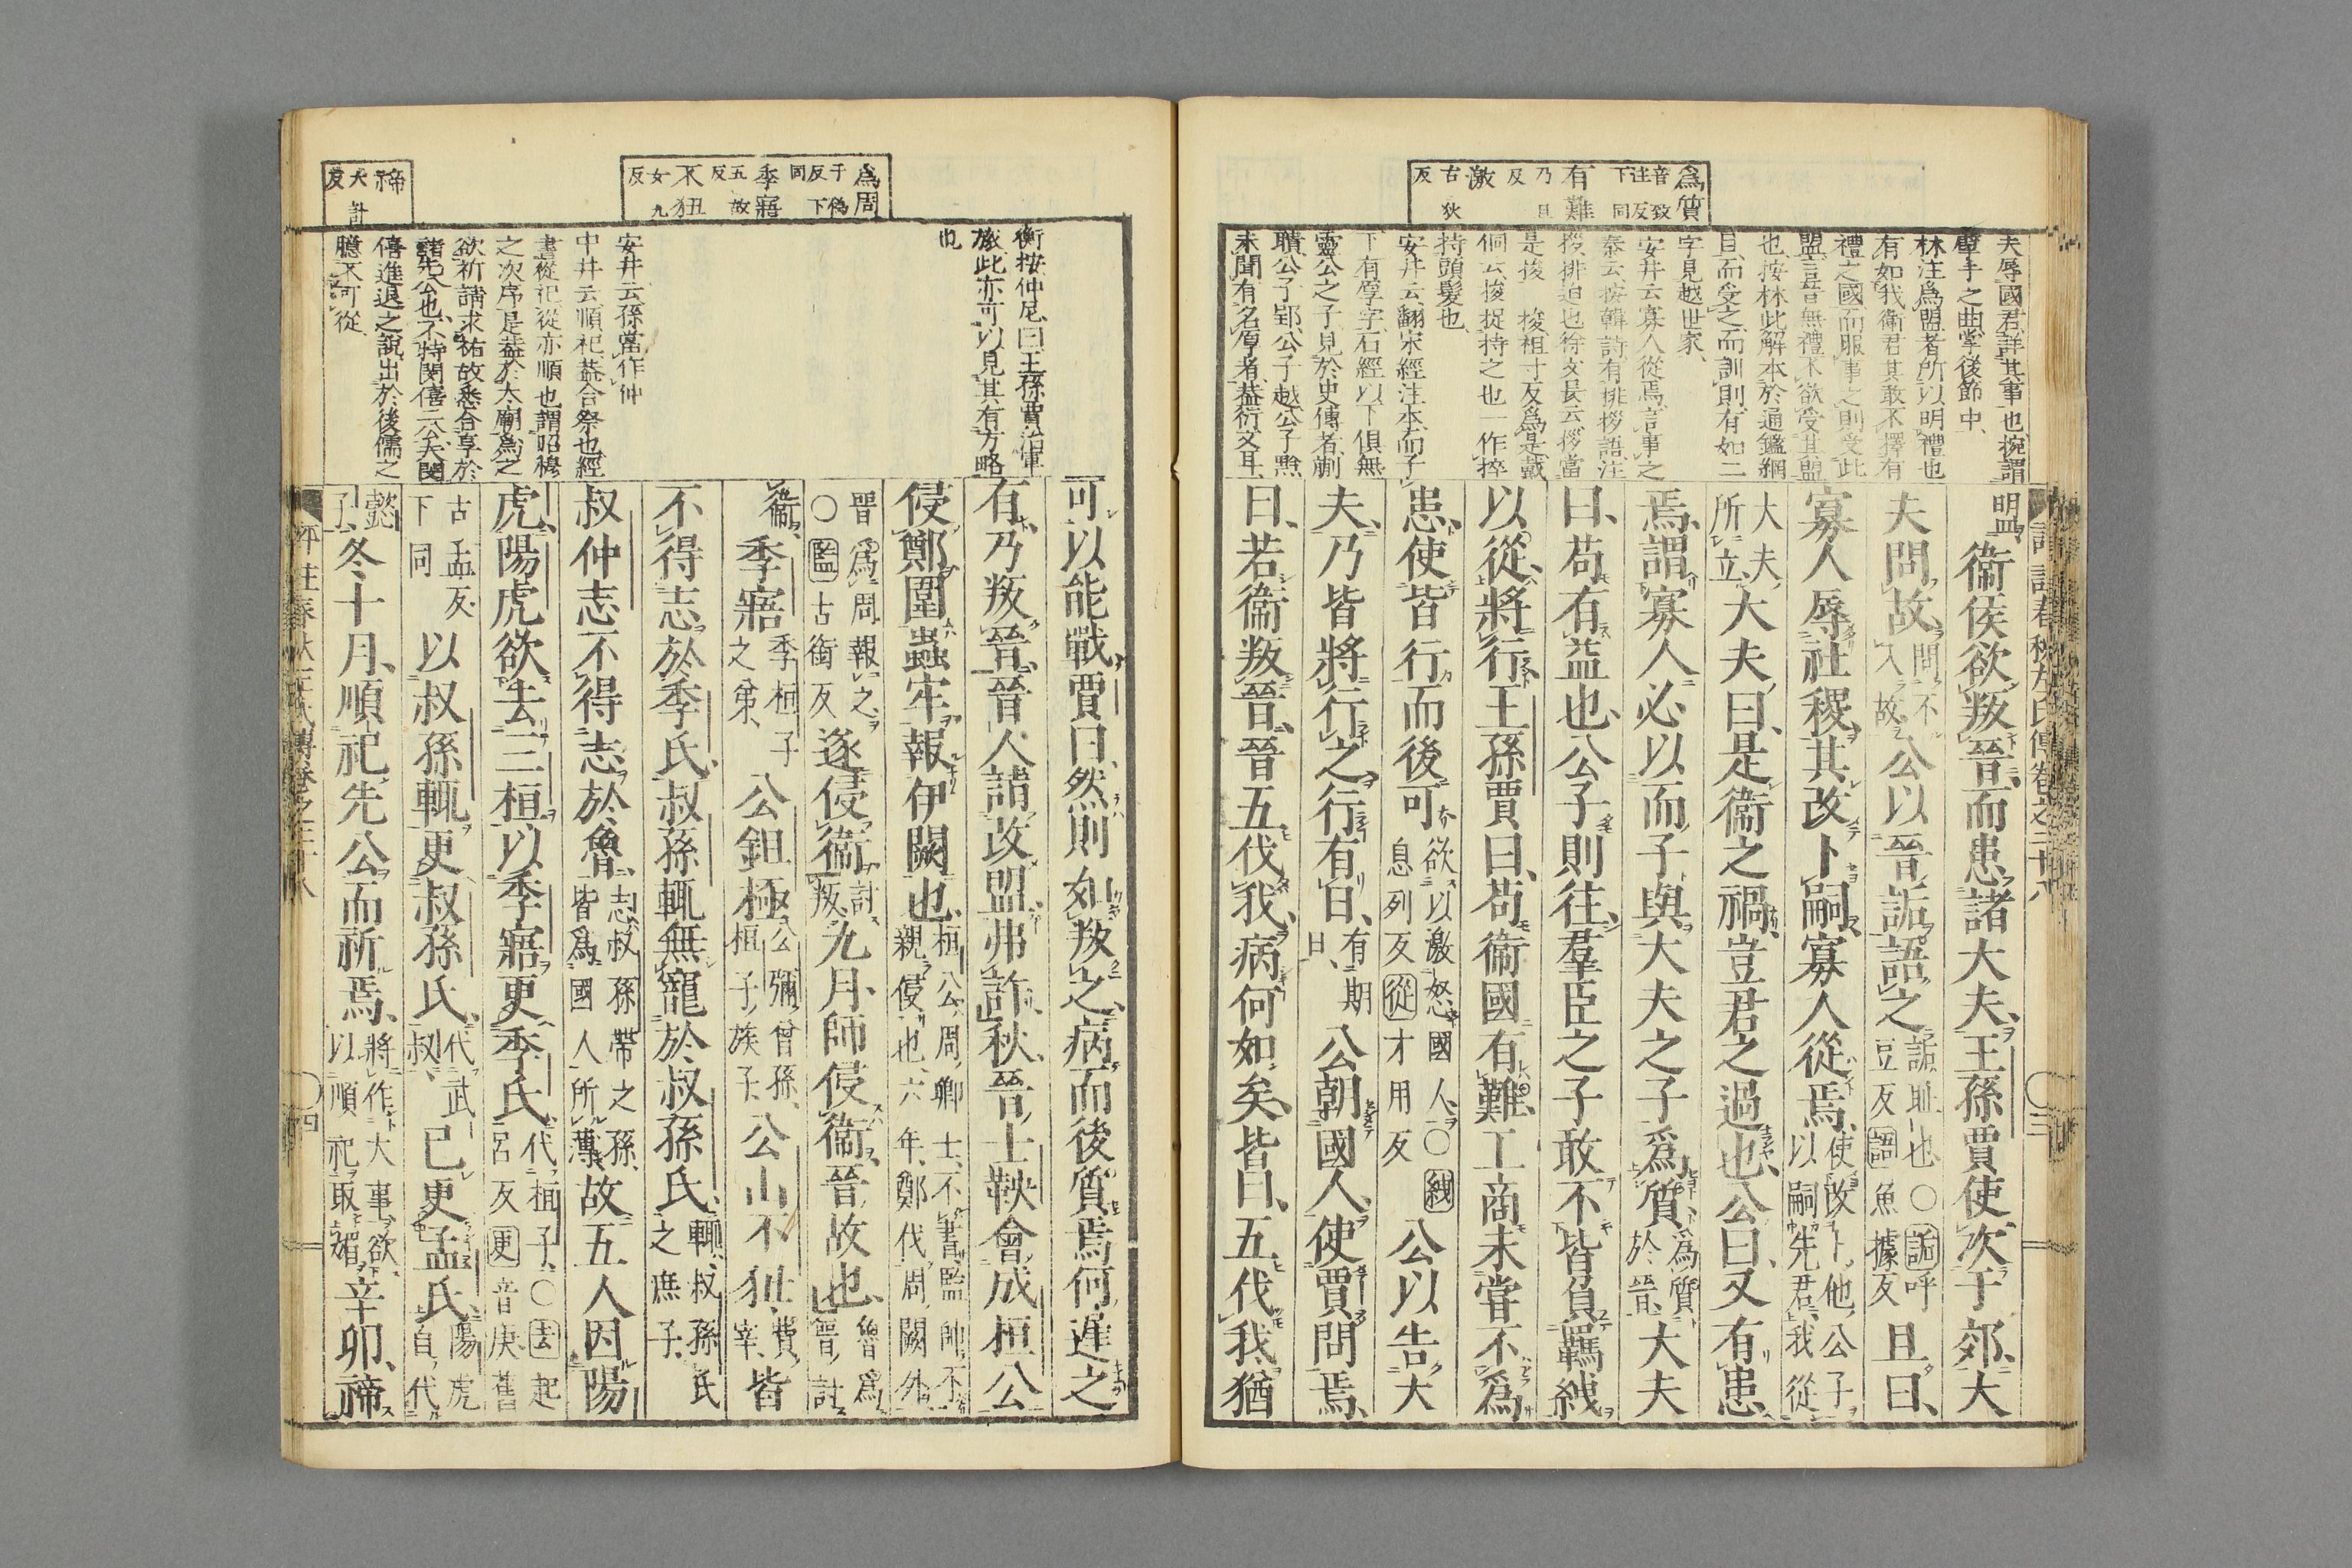 爲質
音致
注反
下同
有難
乃旦
反
激
古狄
反
夫辱國君詳其事也捥謂
掌手之曲掌後節中
林注爲盟者所以明禮也
有如我衞君其敢不擇有
禮之國而服事之則受此
盟言晉無禮不欲受其盟
也按林此解本於通鑑綱
目而受之而訓則有如二
字見越世家
安井云寡人從焉言事之
泰云按韓詩有排拶語注
拶排迫也徐文長云拶當
是捘 捘祖寸反爲是戴
侗云捘捉持之也一作捽
持頭髮也
安井云翻宋經注本而子
下有厚字石經以下俱無
靈公之子見於史傳者蒯
聵公子郢公子越公子黚
未聞有名厚者蓋衍文耳
盟衞侯欲叛晉而患諸大夫王孫賈使次于郊大
夫問故問不入故公以晉詬語之詬恥也○詬呼豆反語魚據反且曰
寡人辱社稷其改卜嗣寡人從焉使改卜他公子以嗣先君我從
大夫所立大夫曰是衞之禍豈君之過也公曰又有患
焉謂寡人必以而子與大夫之子爲質爲質於晉大夫
曰苟有益也公子則往羣臣之子敢不皆負羈紲
以從將行王孫賈曰苟衞國有難工商未嘗不爲
患使皆行而後可欲以激怒國人○紲息列反從才用反公以告大
夫乃皆將行之行有日有期日公朝國人使賈問焉
曰若衞叛晉晉五伐我病何如矣皆曰五伐我猶
爲周
于僞
反下
同
季寤
五故
反
不狃
女九
反
禘
大計
反
衡按仲尼曰王孫賈治軍
旅此亦可以見其有方略
也
安井云孫當作仲
中井云順祀蓋合祭也經
書從祀從亦順也謂昭穆
之次序是蓋於大廟爲之
欲祈請求祐故悉合享於
諸先公也不特閔僖二公夫閔
僖進退之說出於後儒之
臆不可從
可以能戰賈曰然則如叛之病而後質焉何遲之
有乃叛晉晉人請改盟弗許秋晉士鞅會成桓公
侵鄭圍蟲牢報伊闕也桓公周卿士不書監帥不親侵也六年鄭伐周闕外
晉爲周報之○監古銜反遂侵衞討叛九月師侵衞晉故也魯爲晉討
衞季寤季桓子之弟公鉏極公彌曾孫桓子族子公山不狃費宰皆
不得志於季氏叔孫輒無寵於叔孫氏輒叔孫氏之庶子
叔仲志不得志於魯志叔孫帶之孫皆爲國人所薄故五人因陽
虎陽虎欲去三桓以季寤更季氏代桓子○去起呂反更音庚舊
古孟反下同以叔孫輒更叔孫氏代武叔己更孟氏陽虎自代
懿子冬十月順祀先公而祈焉將作大事欲以順祀取媚辛卯禘